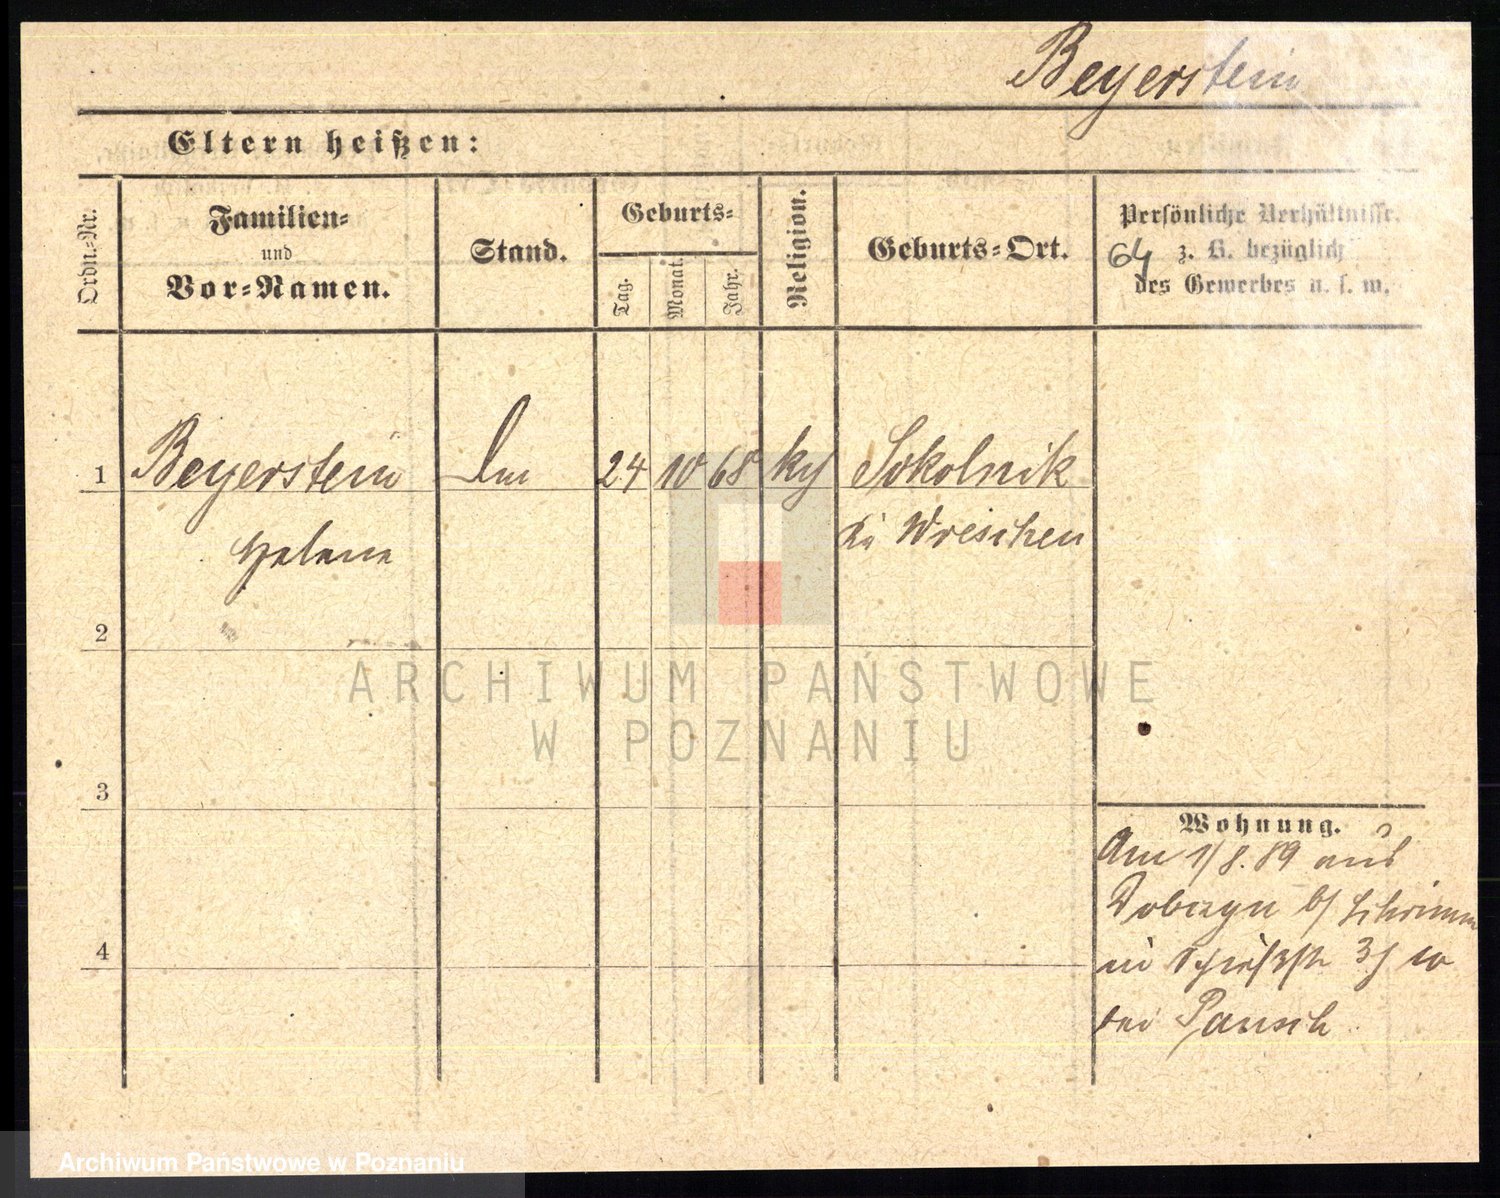 Beyerstein
Eltern heißen:
Ordn.-Nr.
Familien-
und
Vor-Namen.
Stand.
Geburts-
Tag.
Monat.
Jahr.
Religion.
Geburts-Ort.
Persönliche Verhältnisse.
64 z. B. bezüglich
des Gewerbes u. s. w.
1 Beyerstein 24 10 68 Sokolnik
Helene Wreschen
2
3
4
Wohnung.
Am 1/8.89 aus
b/ Schrimm
in 10
bei Pausch
ARCHIWUM PAŃSTWOWE
W POZNANIU
Archiwum Państwowe w Poznaniu